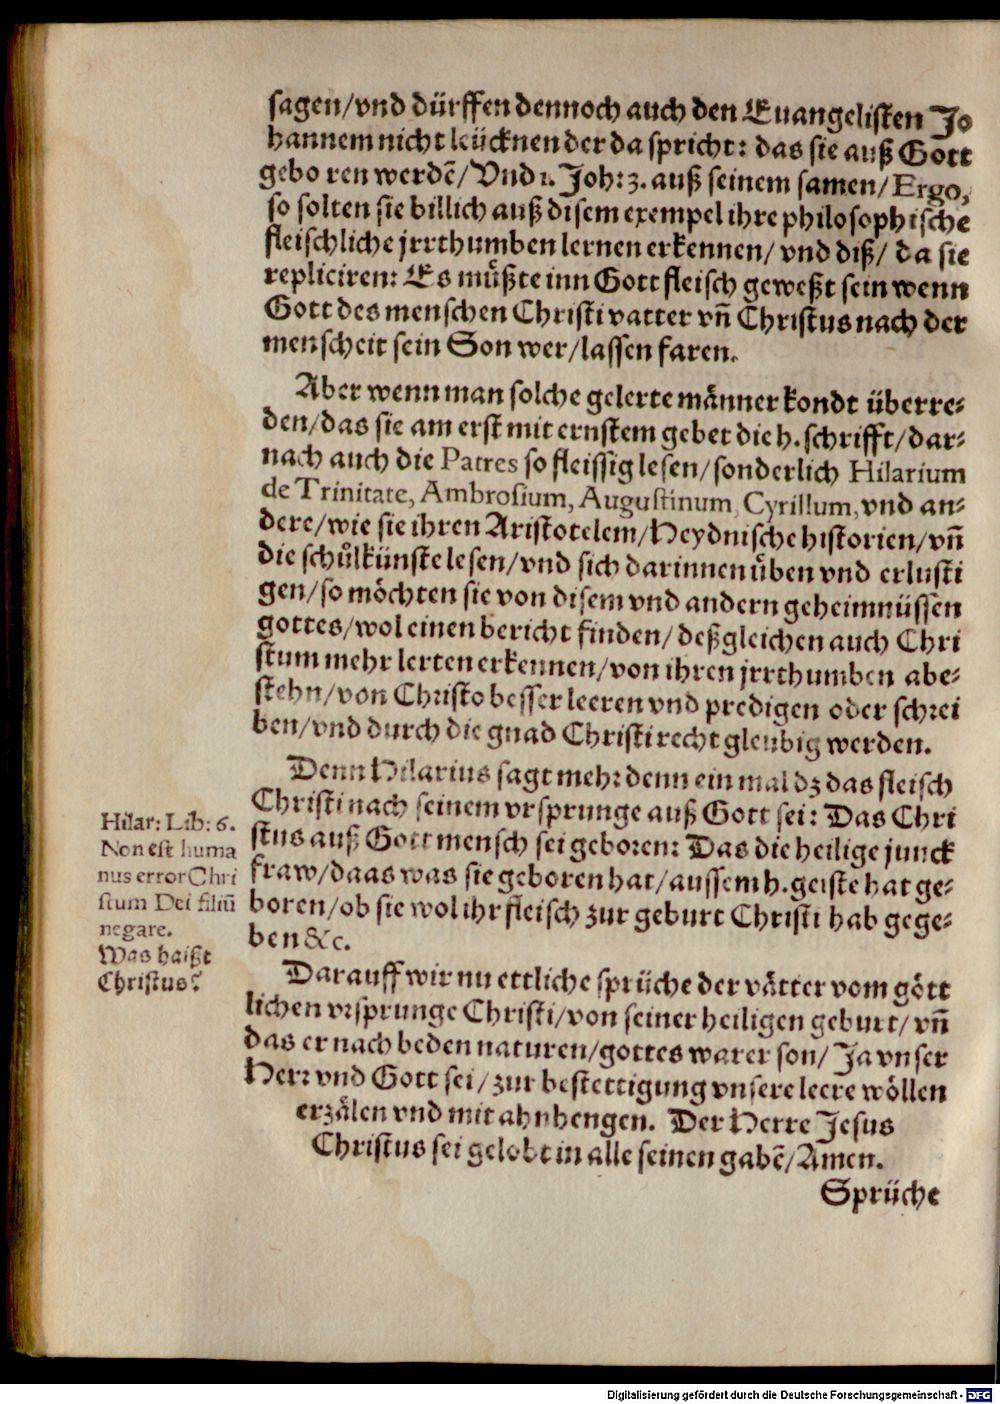 sagen/vnd dürffen dennoch auch den Euangelisten Jo
hannem nicht leücknen der da spricht: das sie auß Gott
gebo ren werdē/ Vnd 1. Joh: 3. auß seinem samen/ Ergo,
so solten sie billich auß disem exempel ihre philosophische
fleischliche jrrthumben lernen erkennen/ vnd diß/ da sie
repliciren: Es müßte inn Gott fleisch geweßt sein wenn
Gott des menschen Christi vatter vñ Christus nach der
menscheit sein Son wer/lassen faren.
Aber wenn man solche gelerte männer kondt überre⸗
den/das sie am erst mit ernstem gebet die h. schrifft/dar⸗
nach auch die Patres so fleissig lesen/sonderlich Hilarium
de Trinitate, Ambrosium, Augustinum, Cyrillum, vnd an⸗
dere/wie sie ihren Aristotelem/Heydnische historien/vñ
die schůlkünste lesen/vnd sich darinnen üben vnd erlusti
gen/so möchten sie von disem vnd andern geheimnüssen
gottes/wol einen bericht finden/ deßgleichen auch Chri
stum mehr lerten erkennen/von ihren jrrthumben abe⸗
stehn/von Christo besser leeren vnd predigen oder schrei
ben/vnd durch die gnad Christi recht gleubig werden.
Denn Hilarius sagt mehr denn ein mal dz das fleisch
Christi nach seinem vrsprunge auß Gott sei: Das Chri
stus auß Gott mensch sei geboren: Das die heilige junck
fraw/daas was sie geboren hat/aussem h. geiste hat ge⸗
boren/ob sie wol ihr fleisch zur geburt Christi hab gege⸗
ben &c.
Hilar: Lib: 6.
Non est huma
nus error Chri
stum Dei filiū
negare.
Was haißt
Christus?
Darauff wir nu ettliche sprüche der vätter vom gött
lichen vrsprunge Christi/von seiner heiligen geburt/ vñ
das er nach beden naturen/gottes warer son/ Ja vnser
Herr vnd Gott sei/zur bestettigung vnsere leere wöllen
erzälen vnd mit ahnhengen. Der Herre Jesus
Christus sei gelobt in alle seinen gabē/Amen.
Sprüche
Digitalisierung gefördert durch die Deutsche Forschungsgemeinschaft - DFG